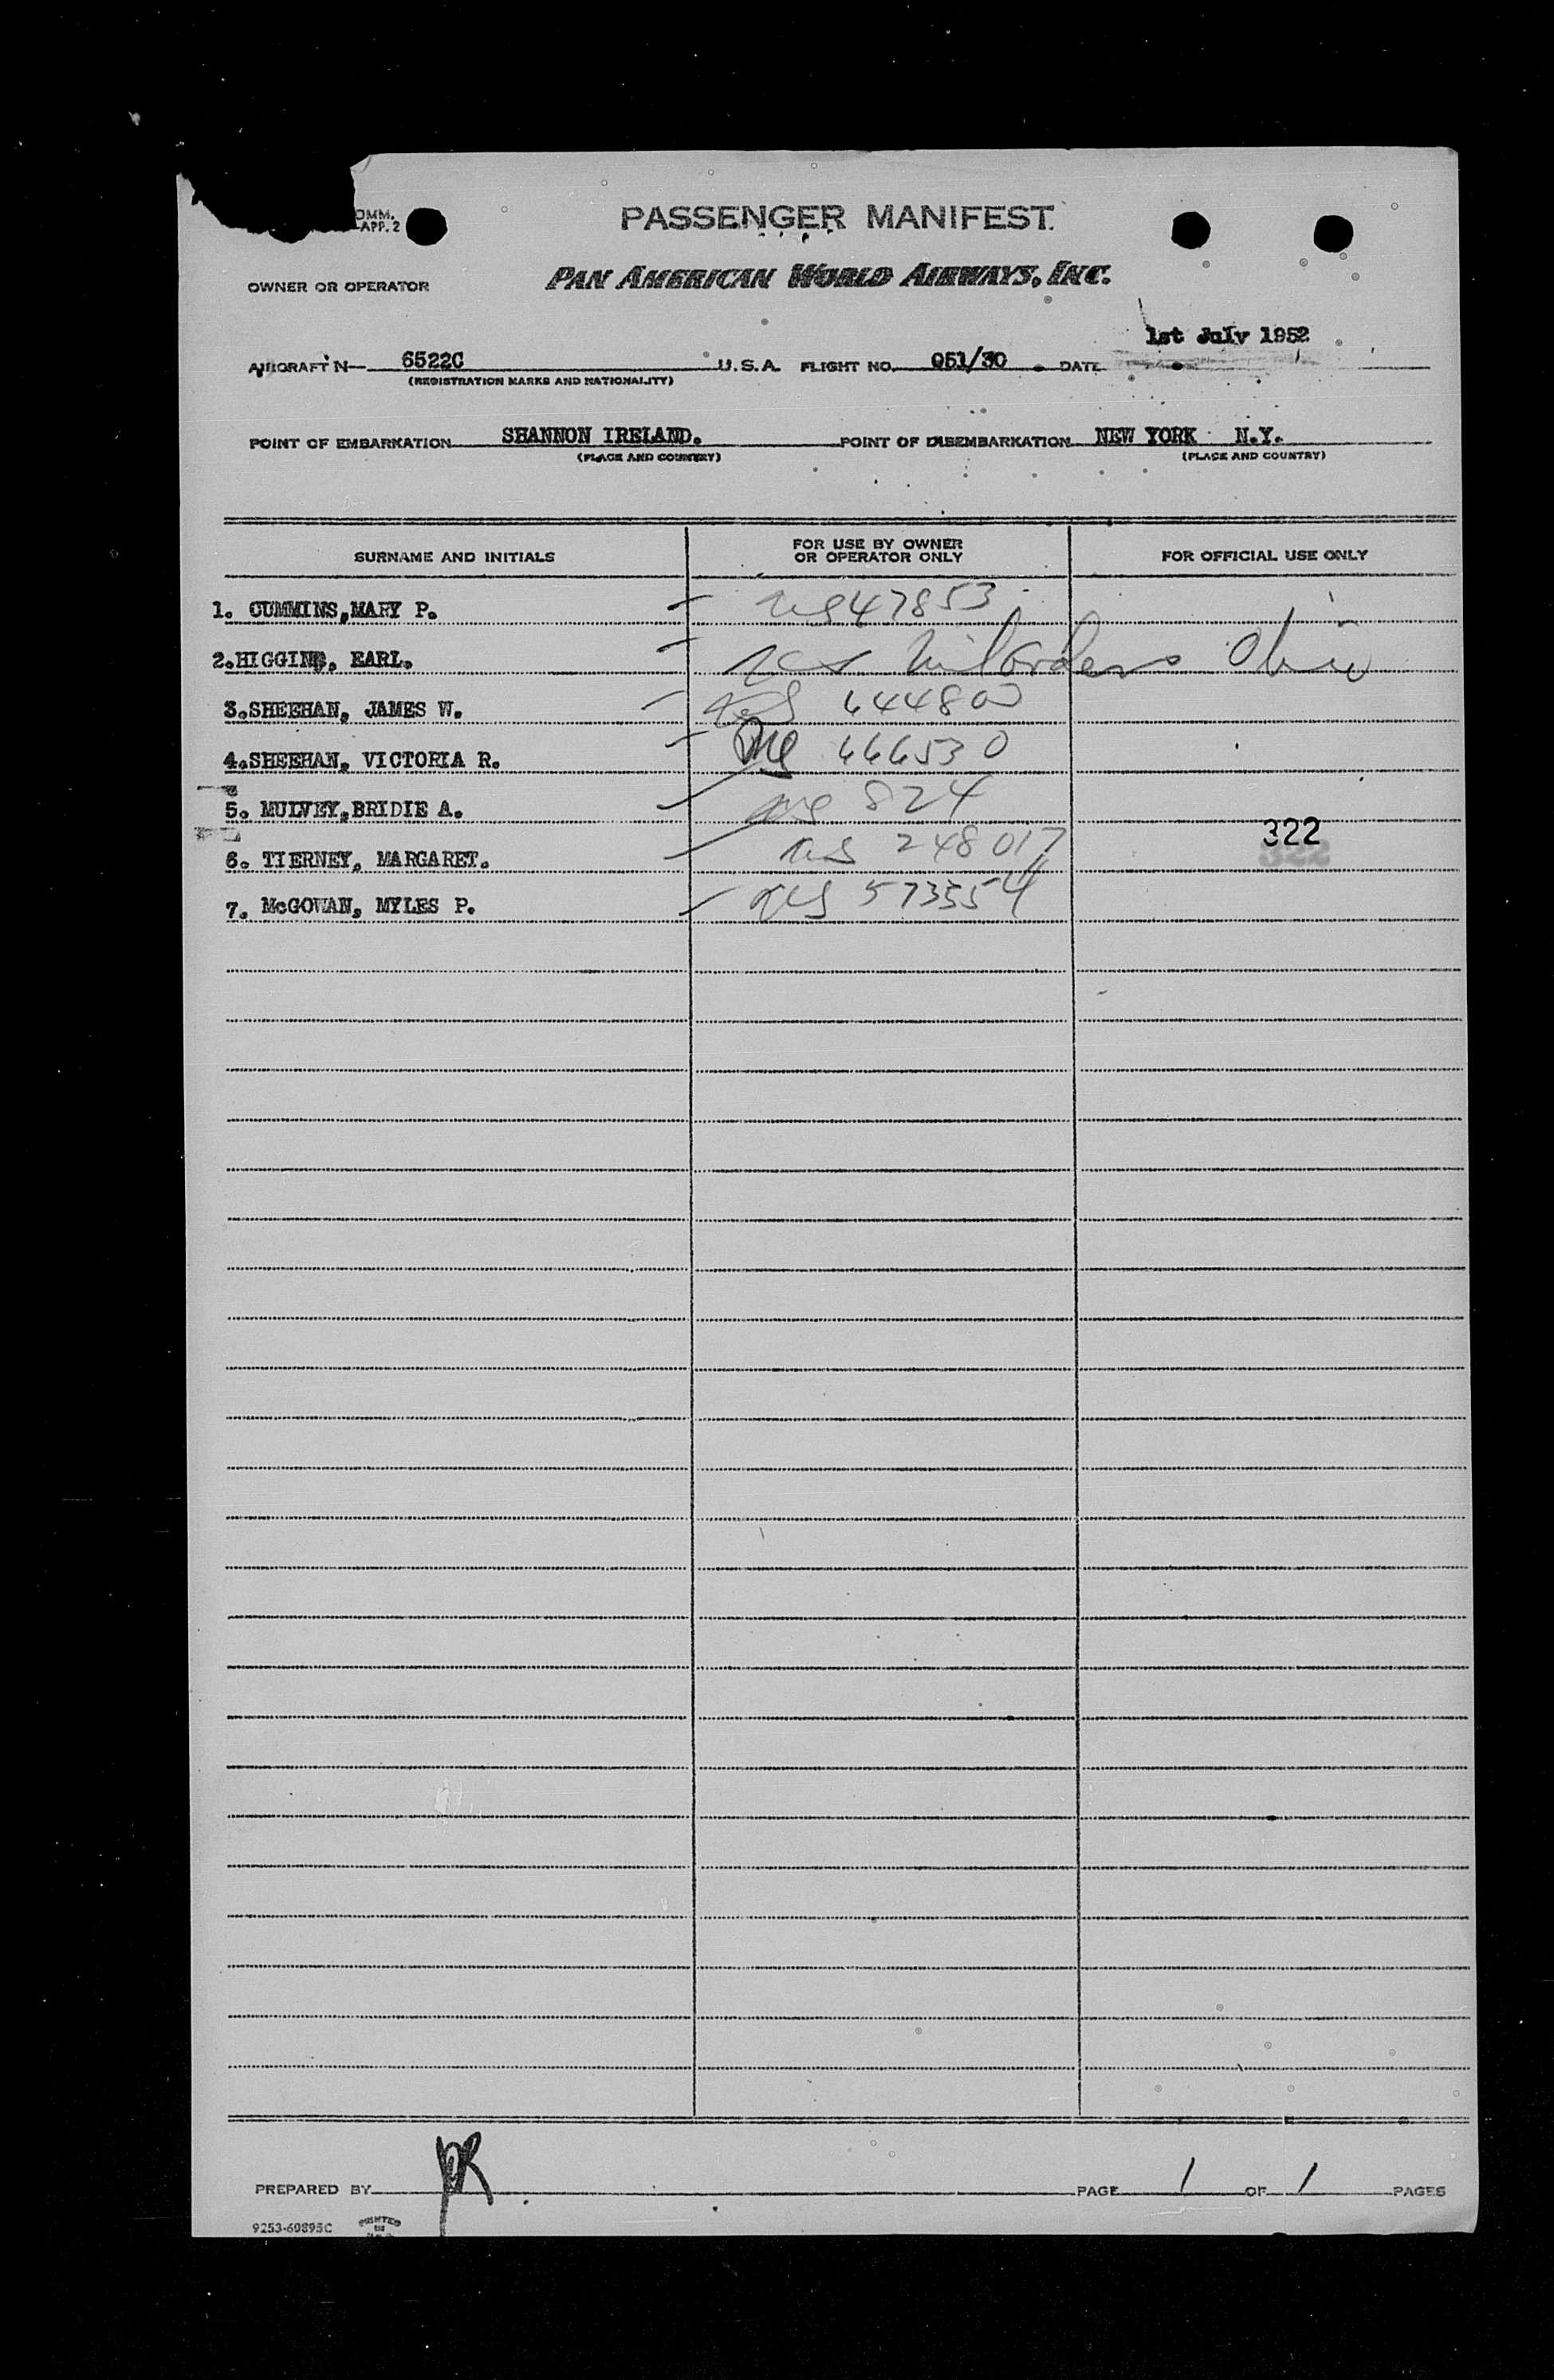 OMM.
APP. 2
PASSENGER MANIFEST.
OWNER OR OPERATOR PAN AMERICAN WORLD AIRWAYS, INC.
1st July 1952
AIRCRAFT N— 6522C U.S.A. FLIGHT NO. 051/30 DATE
(REGISTRATION MARKS AND NATIONALITY)
POINT OF EMBARKATION SHANNON IRELAND. POINT OF DISEMBARKATION NEW YORK N.Y.
(PLACE AND COUNTRY) (PLACE AND COUNTRY)
SURNAME AND INITIALS FOR USE BY OWNER OR OPERATOR ONLY FOR OFFICIAL USE ONLY
1. CUMMINS,MARY P. 47853
2.HIGGINS, EARL. orders
3.SHEEHAN, JAMES W. 644800
4.SHEEHAN, VICTORIA R. 666530
5. MULVEY,BRIDIE A. 824
322
6. TIERNEY, MARGARET. 248017
7. McGOWAN, MYLES P. 573554
PREPARED BY PAGE 1 OF 1 PAGES
9253-60895C PRINTED IN